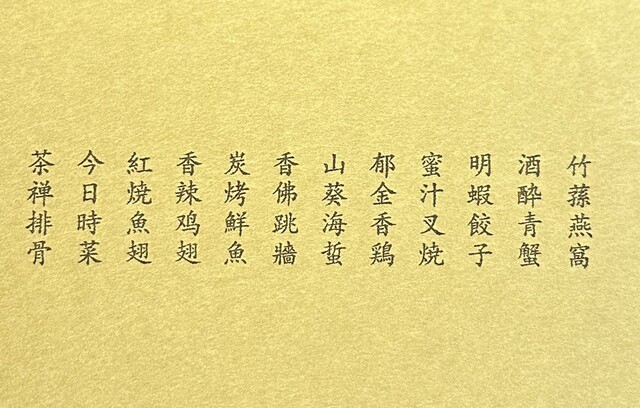 竹蓀燕窩
酒醉青蟹
明蝦餃子
蜜汁叉燒
郁金香鶏
山葵海蜇
香佛跳牆
炭烤鮮魚
香辣鸡翅
紅燒魚翅
今日時菜
茶禅排骨